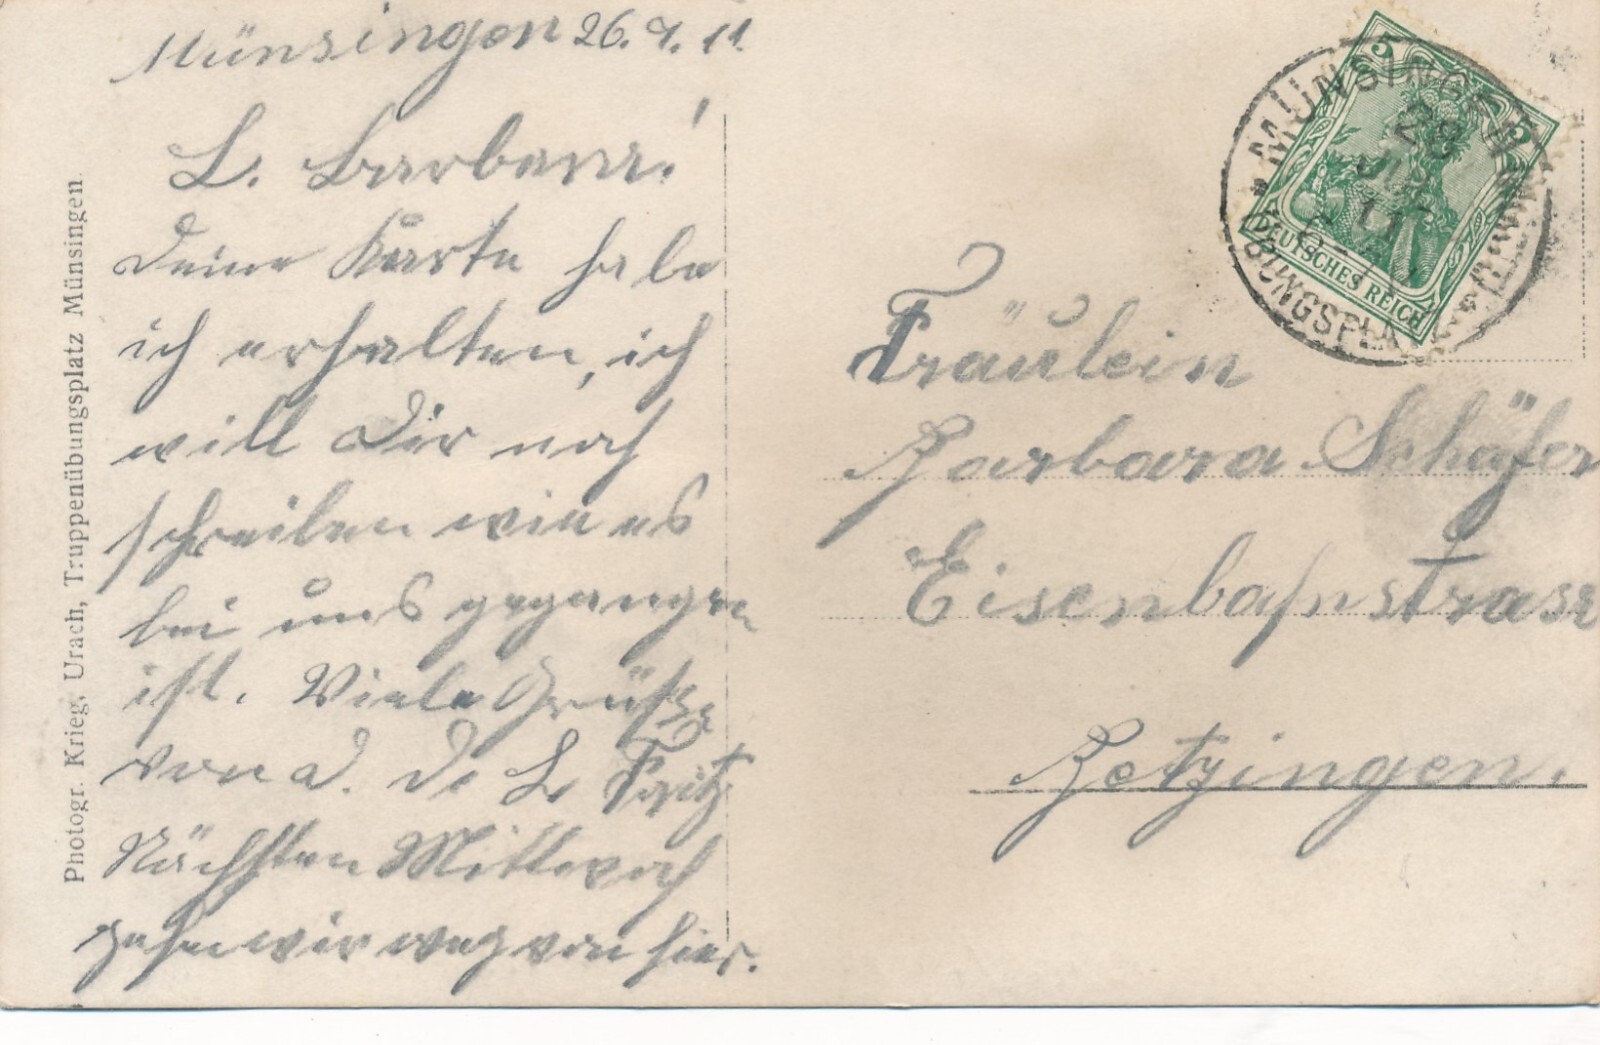 Münsingen 26. 7. 11.
L. Barbara!
Deine Karte habe
ich erhalten, ich
will Dir noch
schreiben wie es
bei uns gegangen
ist. Viele Grüße
von d. L. Fritz
Nächsten Mittwoch
gehn wir weg von hier.
Photogr. Krieg, Urach, Truppenübungsplatz Münsingen.
MÜNSINGEN
11
ÜBUNGSPLATZ
5 5
DEUTSCHES REICH
Fräulein
Barbara Schäfer
Eisenbahnstrasse
Betzingen.